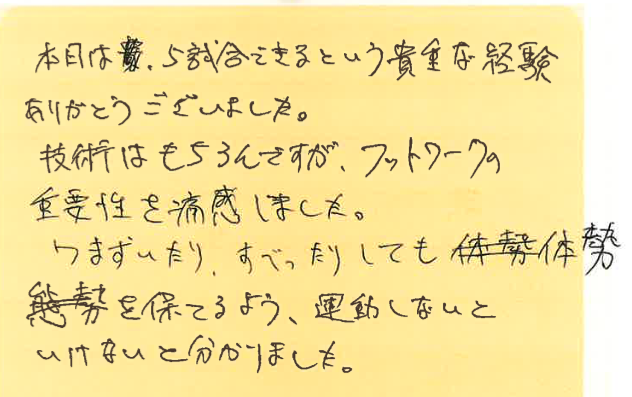 本日は、5試合できるという貴重な経験
ありがとうございました。
技術はもちろんですが、フットワークの
重要性を痛感しました。
つまずいたり、すべったりしても体勢体勢
態勢を保てるよう、運動しないと
いけないと分かりました。